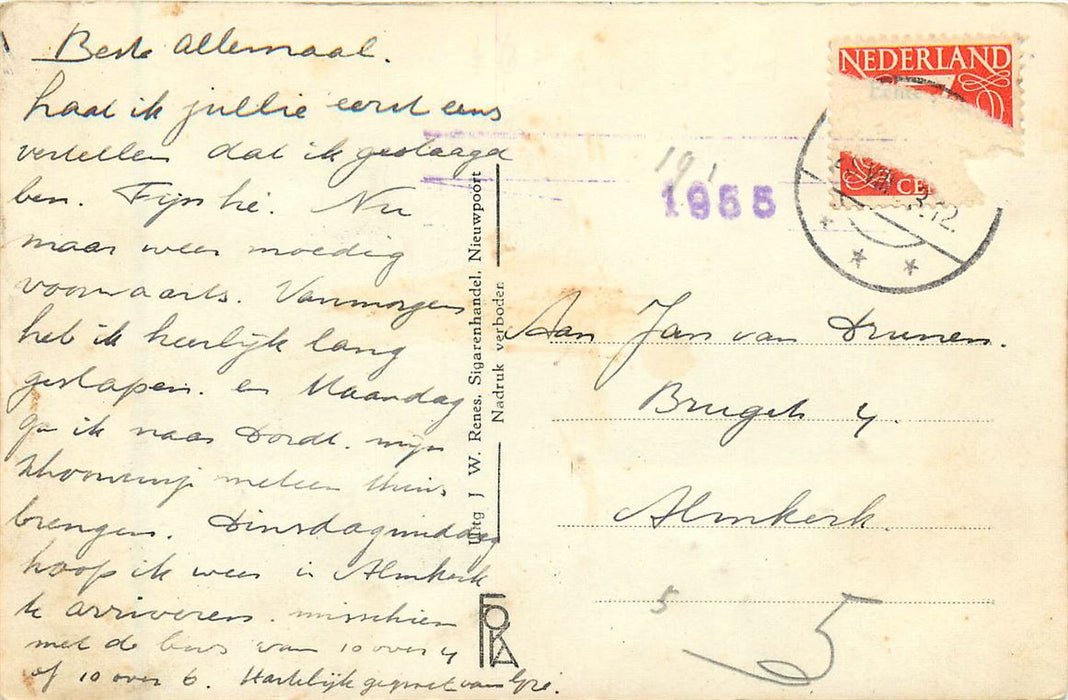 Beste allemaal.
Laat ik jullie eerst eens
vertellen dat ik geslaagd
ben. Fijn hè. Nu
maar weer moedig
voorwaarts. Vanmorgen
heb ik heerlijk lang
geslapen. en Maandag
ga ik naar Dordt. mijn
meteen thuis
brengen. Dinsdagmiddag
hoop ik weer in Almkerk
te arriveren. misschien
met de bus van 10 over 4
of 10 over 6. Hartelijk gegroet van
Uitg J. W. Renes. Sigarenhandel. Nieuwpoort
Nadruk verboden
FOKA
NEDERLAND
CE
Echte
3.12.
19
1955
Aan Jan van Drunen.
Brugek 4.
Almkerk.
5
5